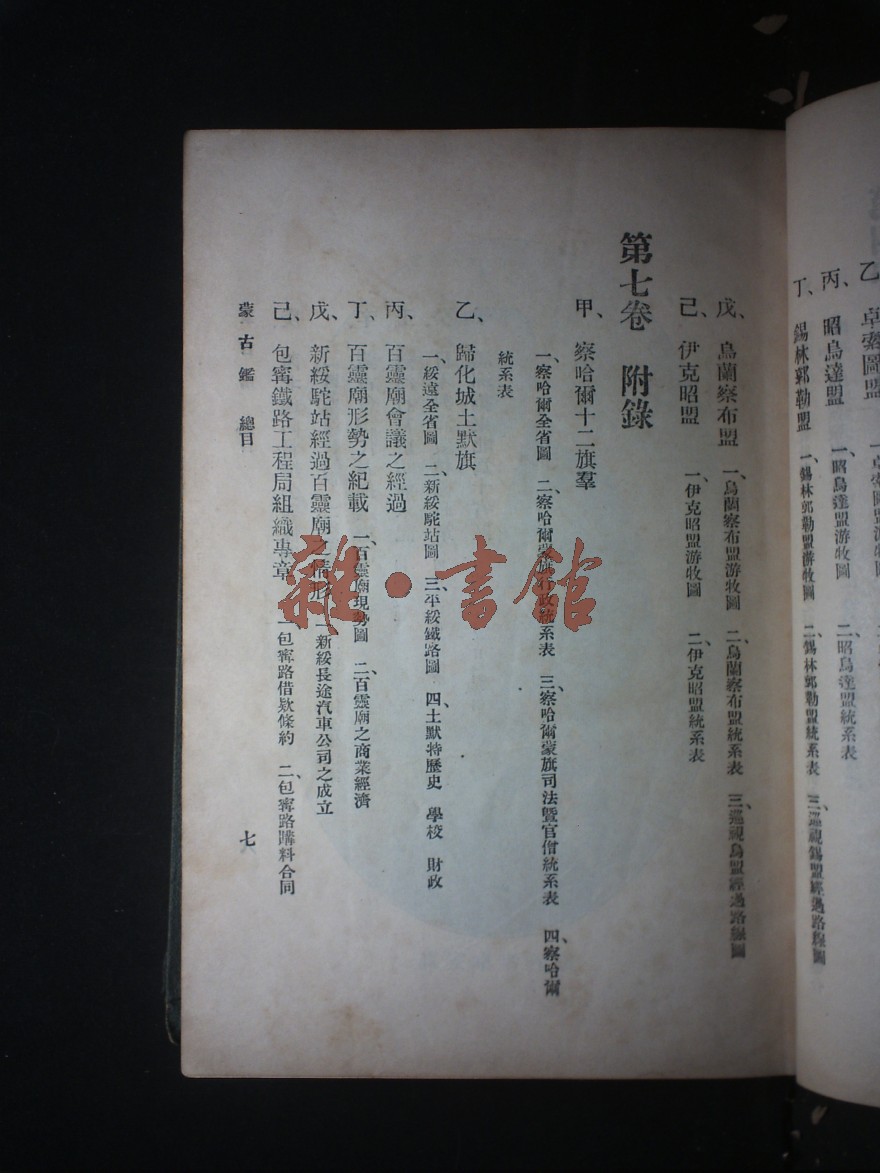 乙、卓索圖盟
丙、昭烏達盟 一、昭烏達盟游牧圖 二、昭烏達盟統系表
丁、錫林郭勒盟 一、錫林郭勒盟游牧圖 二、錫林郭勒盟統系表 三、巡視錫盟經過路線圖
戊、烏蘭察布盟 一、烏蘭察布盟游牧圖 二、烏蘭察布盟統系表 三、巡視烏盟經過路線圖
己、伊克昭盟 一、伊克昭盟游牧圖 二、伊克昭盟統系表
第七卷 附錄
甲、察哈爾十二旗羣
一、察哈爾全省圖 二、察哈爾蒙旗行政統系表 三、察哈爾蒙旗司法暨官僧統系表 四、察哈爾
統系表
乙、歸化城土默旗
一、綏遠全省圖 二、新綏駝站圖 三、平綏鐵路圖 四、土默特歷史 學校 財政
丙、百靈廟會議之經過
丁、百靈廟形勢之紀載 一、百靈廟現勢圖 二、百靈廟之商業經濟
戊、新綏駝站經過百靈廟之情形 一、新綏長途汽車公司之成立
己、包寗鐵路工程局組織專章 一、包寗路借欵條約 二、包寗路購料合同
蒙古鑑 總目
七
雜·書館